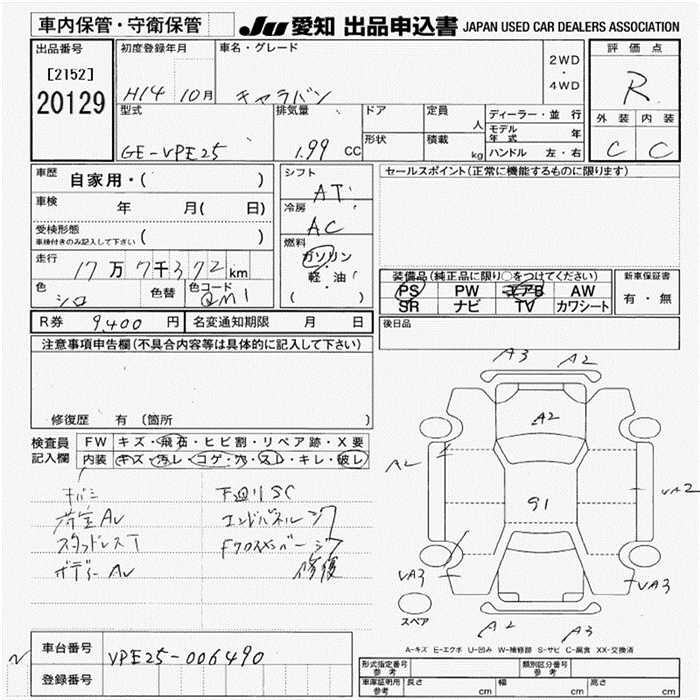 車内保管・守衛保管 JU 愛知 出品申込書 JAPAN USED CAR DEALERS ASSOCIATION
出品番号
[2152]
20129
初度登録年月 車名・グレード
H14 10月 キャラバン
2WD
・
4WD
評価点
R
外装 内装
C C
型式 排気量 ドア 定員 人
GE-VPE25 1.99 CC
形状 積載 kg
ディーラー・並行
モデル年式 年
ハンドル 左・右
車歴 自家用・( )
車検 年 月( 日)
受検形態
車検付きのみ記入して下さい ( )
走行 17万7千372km
色 シロ 色替 色コード QM1
シフト AT
冷房 AC
燃料
ガソリン
・
軽・油
( )
セールスポイント(正常に機能するものに限ります)
装備品(純正品に限り○をつけてください)
PS PW エアB AW
SR ナビ TV カワシート
新車保証書
有・無
R券 9,400 円 名変通知期限 月 日
後日品
注意事項申告欄(不具合内容等は具体的に記入して下さい)
修復歴 有 〔箇所 〕
検査員記入欄
FW キズ・飛石・ヒビ割・リペア跡・X要
内装 キズ・汚レ・コゲ・穴・スレ・キレ・破レ
キバミ 下廻りSC
荷室AU エンドパネル
スタッドレスT Fクロスメンバー
ボデーAU 修復
A3 A2
A2
A2
91
UA2
UA3
UA3
A2 A3
スペア
A-キズ E-エクボ U-凹み W-補修跡 S-サビ C-腐食 XX-交換済
車台番号 VPE25-006490
登録番号
形式指定番号 参考 類別区分番号 参考
車庫証明用 参考 長さ cm 幅 cm 高さ cm